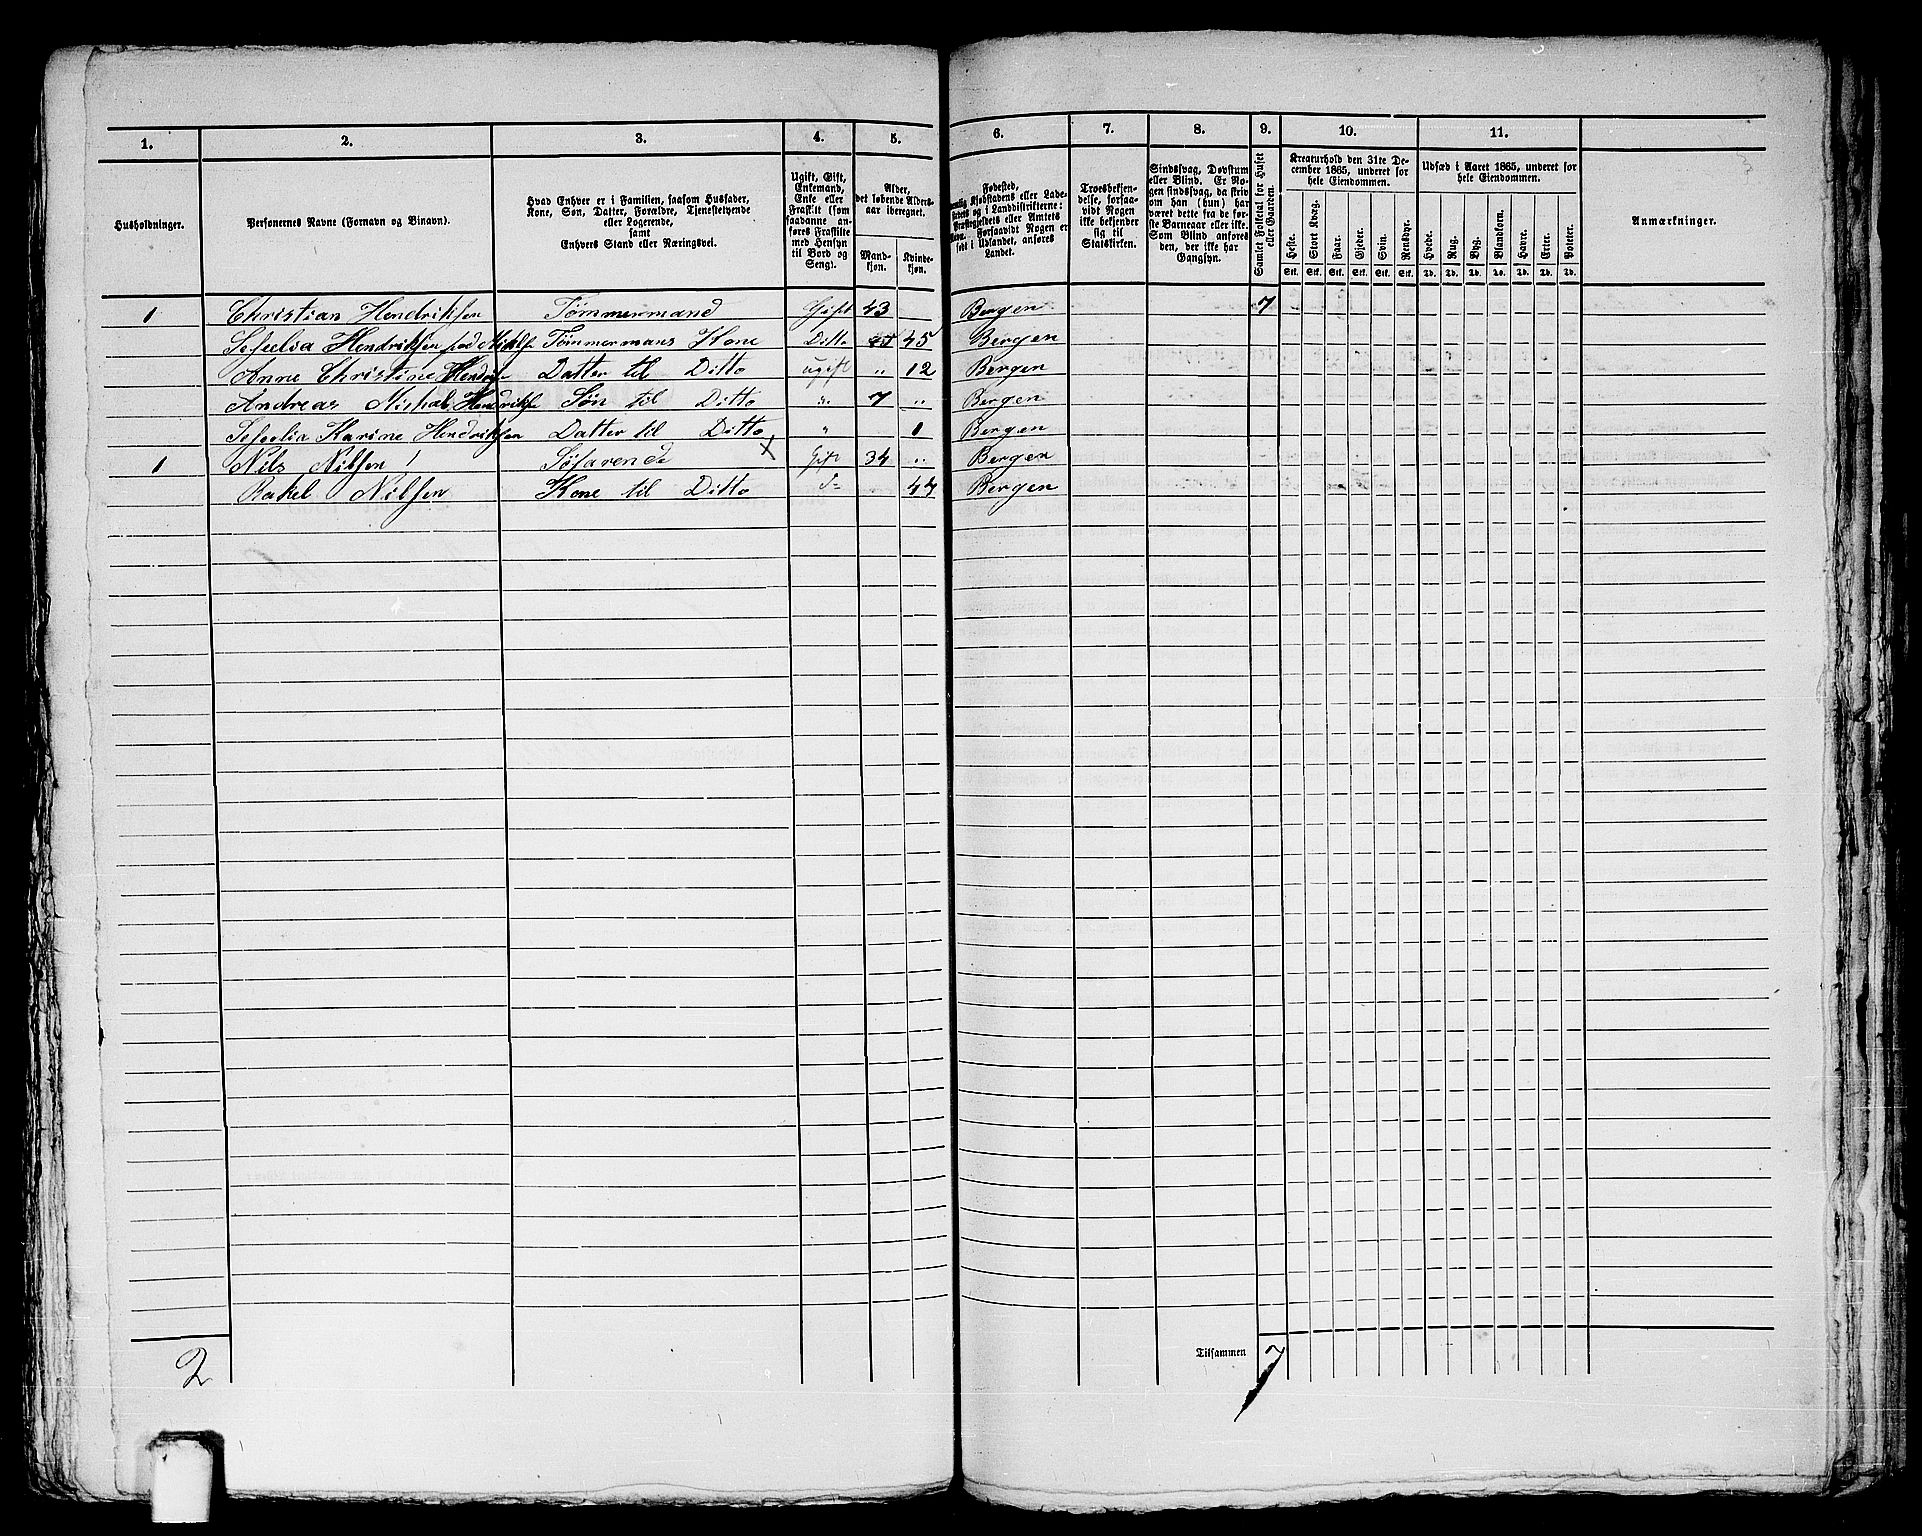 1. 2. 3. 4. 5. 6. 7. 8. 9. 10. 11.
Husholdninger.
Personernes Navne (Fornavn og Binavn).
Hvad Enhver er i Familien, saasom Husfader,
Kone, Søn, Datter, Forældre, Tjenestetyende
eller Logerende,
samt
Enhvers Stand eller Næringsvei.
Ugift, Gift,
Enkemand,
Enke eller
Fraskilt (som
saadanne an-
føres Fraskilte
med Hensyn
til Bord og
Seng).
Alder,
det løbende Alders-
aar iberegnet.
Mand-
kjøn.
Kvinde-
kjøn.
Fødested,
Kjøbstadens eller Lade-
stedets og i Landdistrikterne:
Præstegjeldets eller Amtets
Navn. Forsaavidt Nogen er
født i Udlandet, anføres
Landet.
Troesbekjen-
delse, forsaa-
vidt Nogen
ikke bekjender
sig til
Statskirken.
Sindssvag, Døvstum
eller Blind. Er No-
gen sindssvag, da skriv
om han (hun) har
været dette fra de før-
ste Barneaar eller ikke.
Som Blind anføres
den, der ikke har
Gangsyn.
Samlet Folketal for Huset
eller Gaarden.
Kreaturhold den 31te De-
cember 1865, underet for
hele Eiendommen.
Heste. Stort Kvæg. Faar. Gjeder. Svin. Rensdyr.
Stk. Stk. Stk. Stk. Stk. Stk.
Udsæd i Aaret 1865, underet for
hele Eiendommen.
Hvede. Rug. Byg. Blandkorn. Havre. Erter. Poteter.
Td. Td. Td. Td. Td. Td. Td.
Anmærkninger.
1 Christian Hendriksen Tømmermand Gift 43 Bergen 7
Hendriksen fød Tømmermans Kone Ditto 45 Bergen
Anne Christine Hendriks Datter til Ditto ugift " 12 Bergen
Andreas Michal Hendrikse Søn til Ditto " 7 " Bergen
Karine Hendriksen Datter til Ditto " 1 Bergen
1 Nils Nilsen Søfarende x Gift 34 " Bergen
Rakel Nilsen Kone til Ditto d= 44 Bergen
2
Tilsammen 7